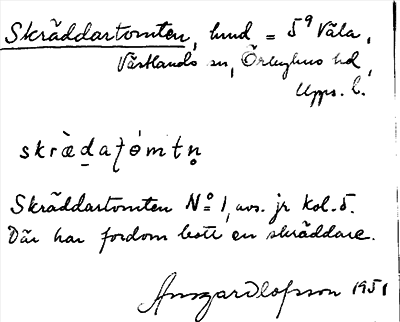 Skräddartomten, lund = 5⁹ Väla,
Västlands sn, Örbyhus hd,
Upps. l.
skrὰ̈da̱ʈómtn̥
Skräddartomten No 1, avs. jr kol. 5.
Där har fordom bott en skräddare.
Ansgar Olofsson 1951